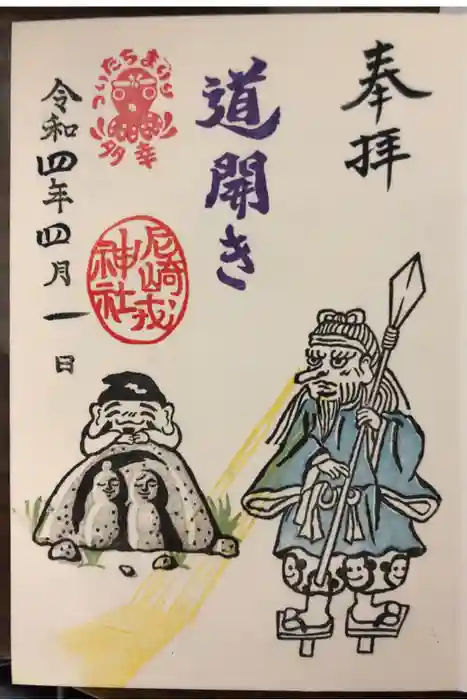 奉拝
道開き
ついたちまいり
多幸
尼崎戎
神社
令和四年四月一日